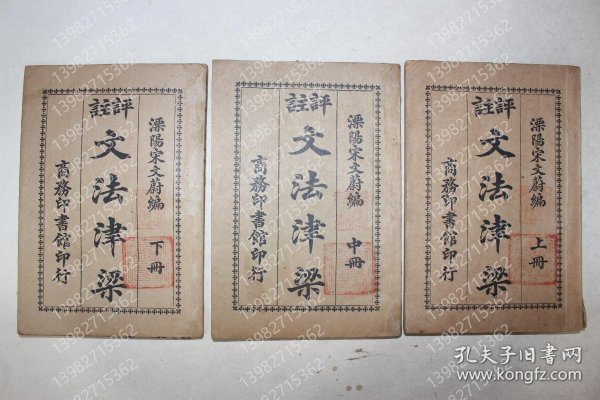 溧陽宋文蔚編
評註
文法津梁
上冊
商務印書館印行
溧陽宋文蔚編
評註
文法津梁
中冊
商務印書館印行
溧陽宋文蔚編
評註
文法津梁
下冊
商務印書館印行
13982715362
孔夫子旧书网
www.kongfz.com